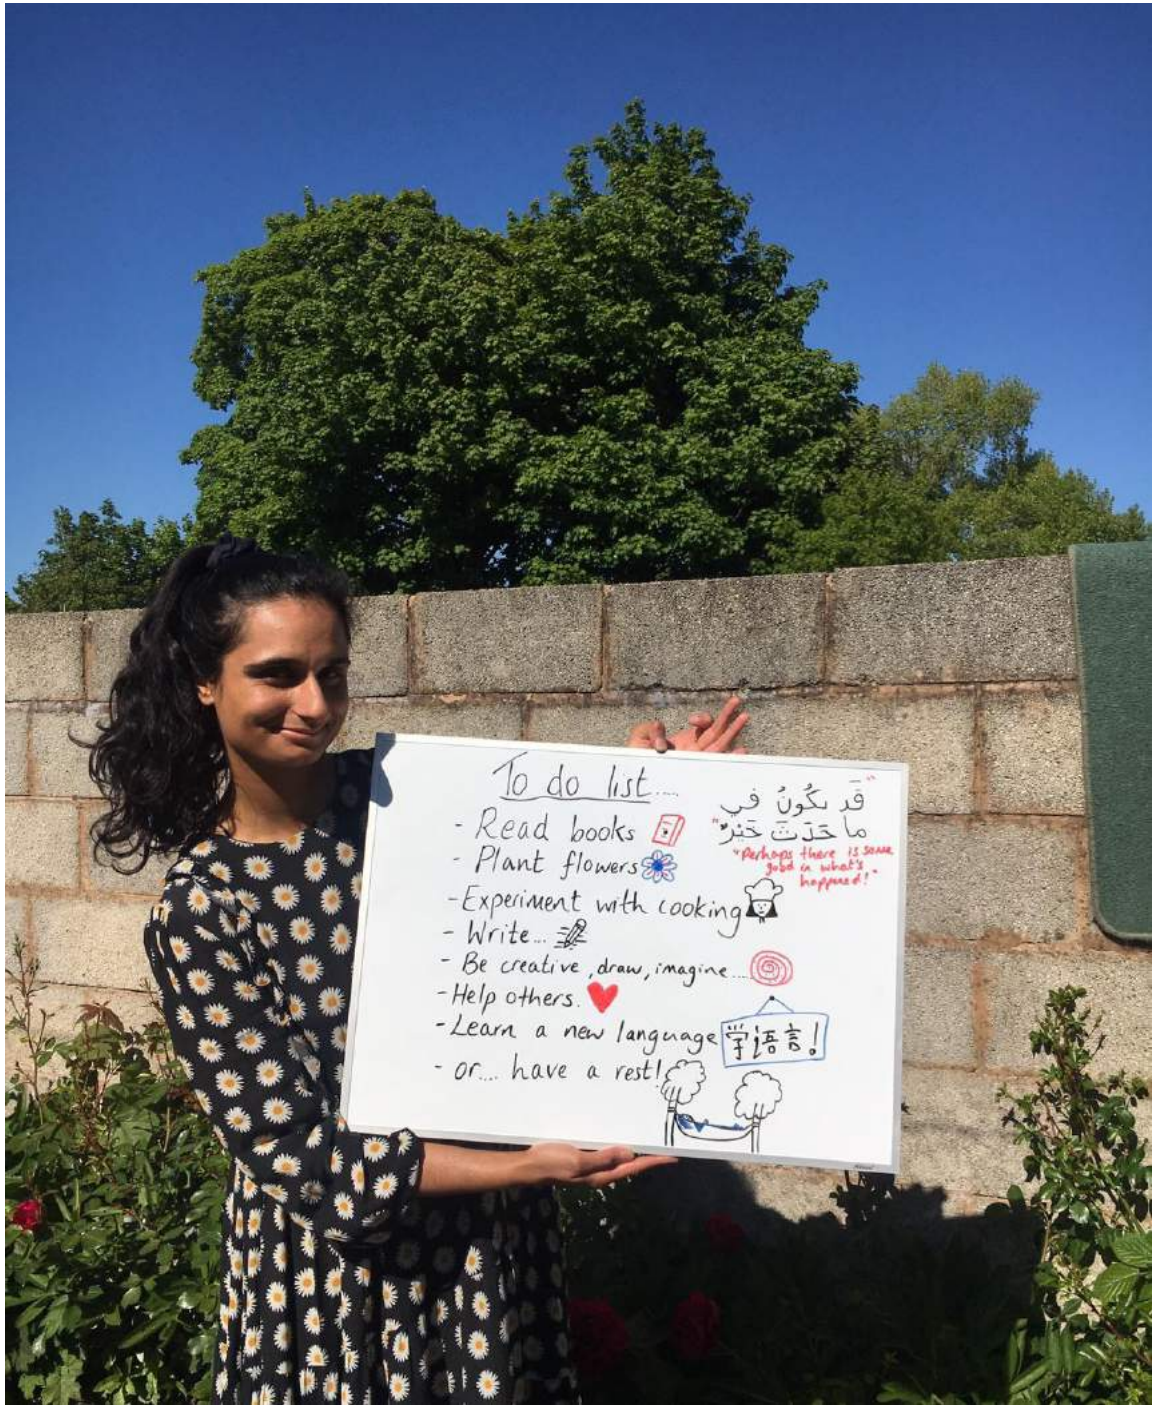 To do list....
- Read books
- Plant flowers
- Experiment with cooking
- Write...
- Be creative, draw, imagine....
- Help others.
- Learn a new language 学语言!
- or.... have a rest!
"قَد يَكُونُ في
ما حَدَثَ خَيْرٌ"
"Perhaps there is some
good in what's
happened!"